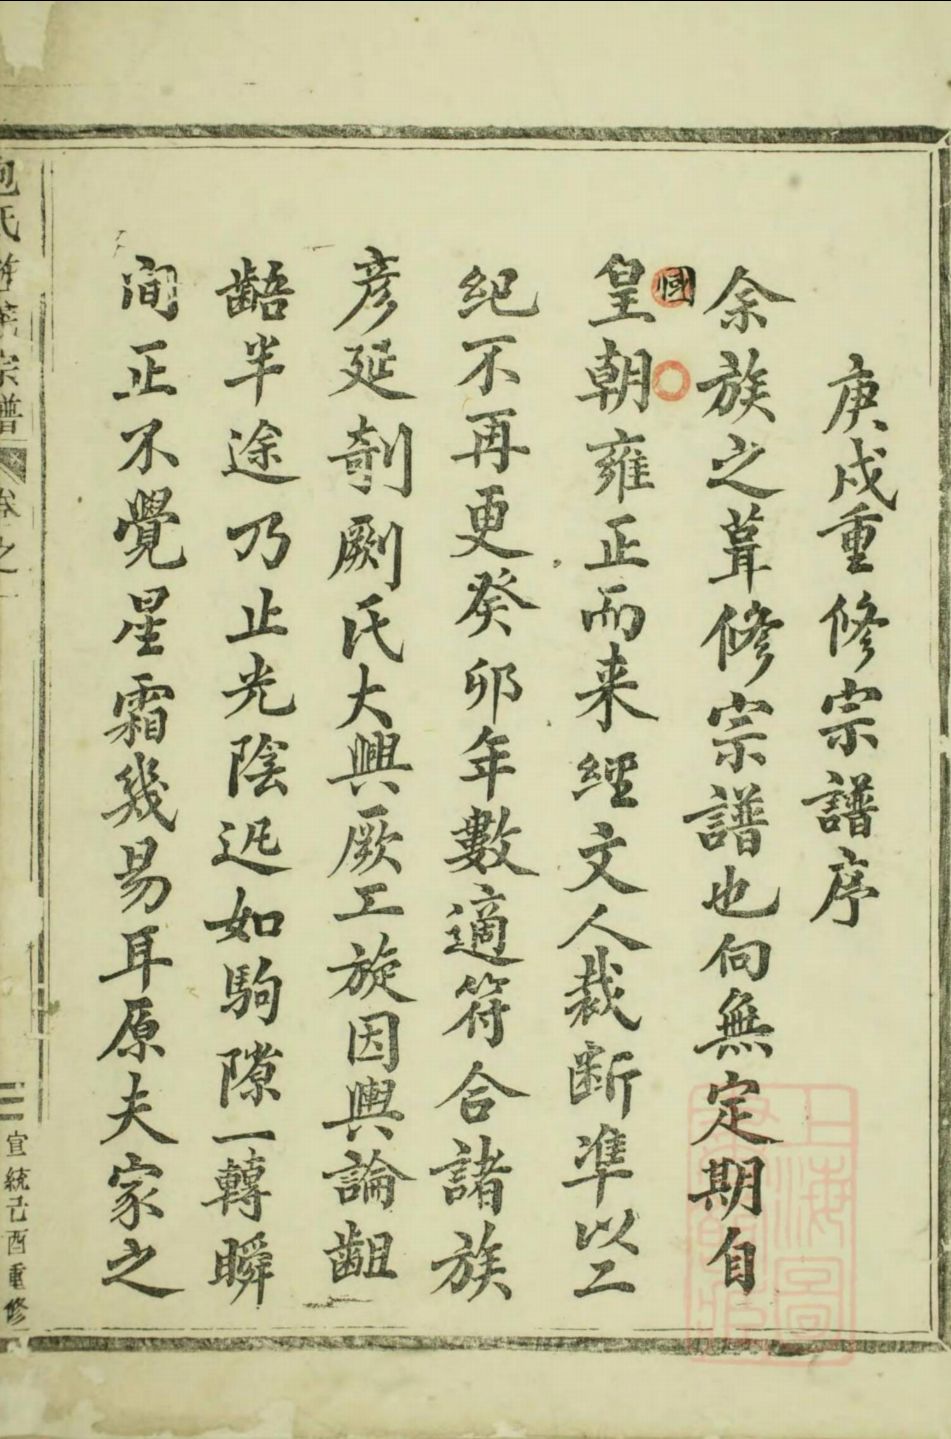 庚戌重修宗譜序
余族之葺修宗譜也向無定期自
皇朝雍正而来經文人裁断準以二
紀不再更癸卯年數適符合諸族
彦延剞劂氏大興厥工旋因輿論齟
齬半途乃止光陰迅如駒隙一轉瞬
间正不覺星霜幾易耳原夫家之
氏
宗譜
卷之一
宣統己酉重修
上海圖